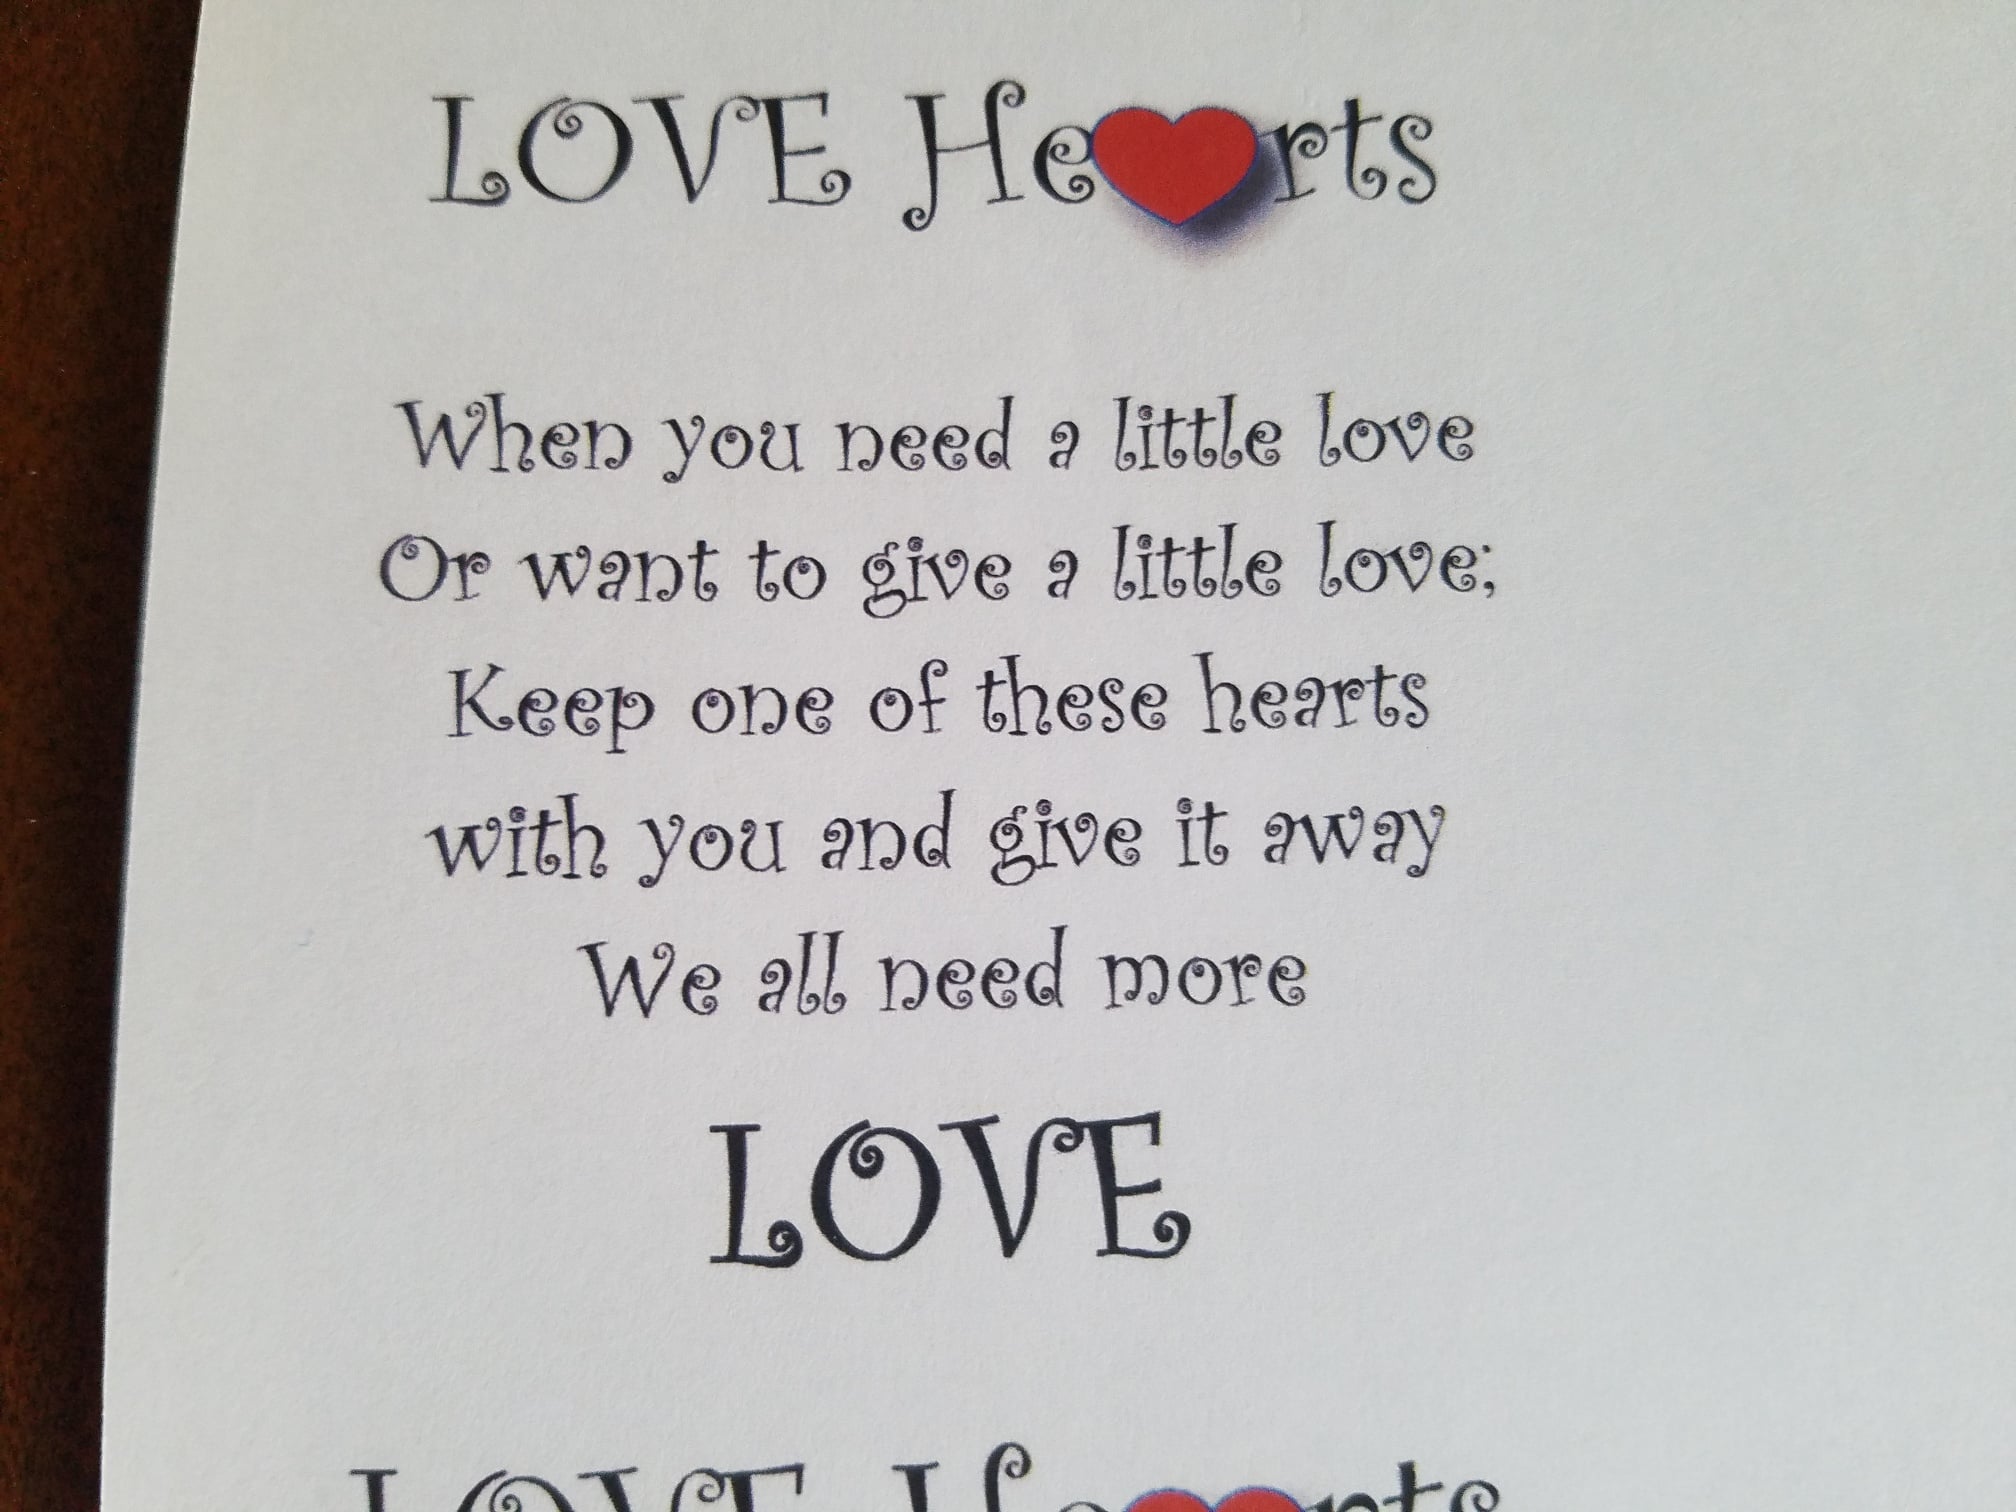 LOVE He❤rts
When you need a little love
Or want to give a little love;
Keep one of these hearts
with you and give it away
We all need more
LOVE
LOVE He❤rts